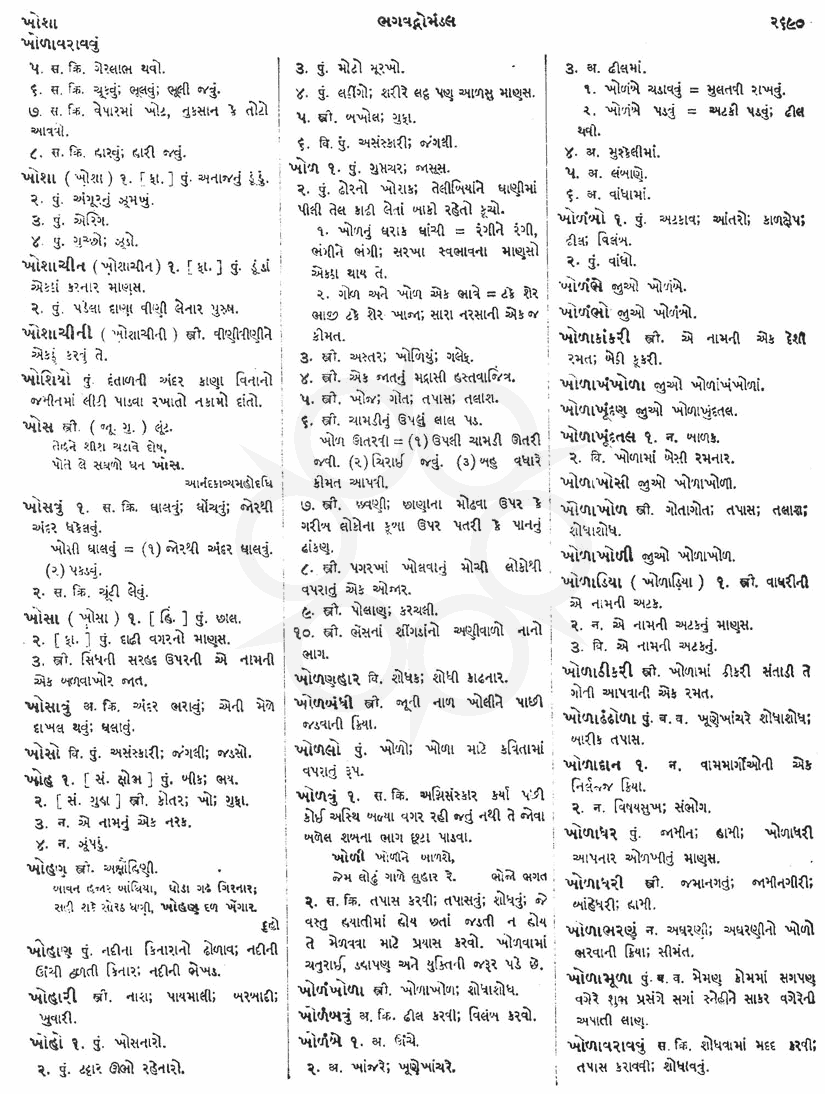 ખોશા
ભગવદ્ગોમંડલ
૨૬૯૦
ખોળાવરાવવું
૫. સ. ક્રિ. ગેરલાભ થવો.
૬. સ. ક્રિ. ચૂકવું; ભૂલવું; ભૂલી જવું.
૭. સ. ક્રિ. વેપારમાં ખોટ, નુકસાન કે તોટો
આવવો.
૮. સ. ક્રિ. હારવું; હારી જવું.
ખોશા ( ખ઼ોશા ) ૧. [ ફા. ] પું. અનાજનું ડૂંડું.
૨. પું. અંગૂરનું ઝૂમખું.
૩. પું. એરિંગ.
૪. પું. ગુચ્છો; ઝૂડો.
ખોશાચીન ( ખ઼ોશાચીન ) ૧. [ ફા. ] પું. ડૂંડાં
એકઠાં કરનાર માણસ.
૨. પું. પડેલા દાણા વીણી લેનાર પુરુષ.
ખોશાચીની ( ખ઼ોશાચીની ) સ્ત્રી. વીણીવીણીને
એકઠું કરવું તે.
ખોશિયો પું. દંતાળની અંદર કાણા વિનાનો
જમીનમાં લીટી પાડવા રખાતો નકામો દાંતો.
ખોસ સ્ત્રી. ( જૂ. ગુ. ) લૂંટ.
તેહને શીશ ચડાવે દોષ,
પોતે લે સઘળો ધન ખોસ.
આનંદકાવ્યમહોદધિ
ખોસવું ૧. સ. ક્રિ. ઘાલવું; ઘોંચવું; જોરથી
અંદર ધકેલવું.
ખોસી ઘાલવું = (૧) જોરથી અંદર ઘાલવું.
(૨) પકડવું.
૨. સ. ક્રિ. ચૂંટી લેવું.
ખોસા ( ખ઼ોસા ) ૧. [ હિં. ] પું. છાલ.
૨. [ ફા. ] પું. દાઢી વગરનો માણસ.
૩. સ્ત્રી. સિંધની સરહદ ઉપરની એ નામની
એક બળવાખોર જાત.
ખોસાવું અ. ક્રિ. અંદર ભરાવું; એની મેળે
દાખલ થવું; ઘલાવું.
ખોસો વિ. પું. અસંસ્કારી; જંગલી; જડસો.
ખોહ ૧. [ સં. ક્ષોભ ] પું. બીક; ભય.
૨. [ સં. ગુહા ] સ્ત્રી. કોતર; ખો; ગુફા.
૩. ન. એ નામનું એક નરક.
૪. ન. ઝૂંપડું.
ખોહણ સ્ત્રી. અક્ષૌહિણી.
બાવન હજાર બાંધિયા, ઘોડા ગઢ ગિરનાર;
સહી શકે સોરઠ ધણી, ખોહણ દળ ખેંગાર.
દુહો
ખોહાણ પું. નદીના કિનારાનો ઢોળાવ; નદીની
ઊંચી ઢળતી કિનાર; નદીની ભેખડ.
ખોહારી સ્ત્રી. નાશ; પાયમાલી; બરબાદી;
ખુવારી.
ખોહો ૧. પું. ખોસનારો.
૨. પું. ટટ્ટાર ઊભો રહેનારો.
૩. પું. મોટો મૂરખો.
૪. પું. લઠીંગો; શરીરે લઠ્ઠ પણ આળસુ માણસ.
૫. સ્ત્રી. બખોલ; ગુફા.
૬. વિ. પું. અસંસ્કારી; જંગલી.
ખોળ ૧. પું. ગુપ્તચર; જાસૂસ.
૨. પું. ઢોરનો ખોરાક; તેલીબિયાંને ઘાણીમાં
પીલી તેલ કાઢી લેતાં બાકી રહેતો કૂચો.
૧. ખોળનું ઘરાક ઘાંચી = રંગીને રંગી,
ભંગીને ભંગી; સરખા સ્વભાવના માણસો
એકઠા થાય તે.
૨. ગોળ અને ખોળ એક ભાવે = ટકે શેર
ભાજી ટકે શેર ખાજા; સારા નરસાની એક જ
કીમત.
૩. સ્ત્રી. અસ્તર; ખોળિયું; ગલેફ.
૪. સ્ત્રી. એક જાતનું મદ્રાસી હસ્તવાજિંત્ર.
૫. સ્ત્રી. ખોજ; ગોત; તપાસ; તલાશ.
૬. સ્ત્રી. ચામડીનું ઉપલું લાલ પડ.
ખોળ ઊતરવી = (૧) ઉપલી ચામડી ઊતરી
જવી. (૨) ચિરાઈ જવું. (૩) બહુ વધારે
કીમત આપવી.
૭. સ્ત્રી. છવણી; છાણાના મોઢવા ઉપર કે
ગરીબ લોકોના કૂબા ઉપર પતરી કે પાનનું
ઢાંકણ.
૮. સ્ત્રી. પગરખાં ખોલવાનું મોચી લોકોથી
વપરાતું એક ઓજાર.
૯. સ્ત્રી. પોલાણ; કરચલી.
૧૦. સ્ત્રી. ભેંસનાં શીંગડાંનો અણીવાળો નાનો
ભાગ.
ખોળણહાર વિ. શોધક; શોધી કાઢનાર.
ખોળબંધી સ્ત્રી. જૂની નાળ ખોલીને પાછી
જડવાની ક્રિયા.
ખોળલો પું. ખોળો; ખોળા માટે કવિતામાં
વપરાતું રૂપ.
ખોળવું ૧. સ. ક્રિ. અગ્નિસંસ્કાર કર્યા પછી
કોઈ અસ્થિ બળ્યા વગર રહી જતું નથી તે જોવા
બળેલ શબના ભાગ છૂટા પાડવા.
ખોળી ખોળીને બાળશે,
જેમ લોઢું ગાળે લુહાર રે. ભોજો ભગત
૨. સ. ક્રિ. તપાસ કરવી; તપાસવું; શોધવું; જે
વસ્તુ હયાતીમાં હોય છતાં જડતી ન હોય
તે મેળવવા માટે પ્રયાસ કરવો. ખોળવામાં
ચતુરાઈ, ડહાપણ અને યુક્તિની જરૂર પડે છે.
ખોળંખોળા સ્ત્રી. ખોળાખોળ; શોધાશોધ.
ખોળંબવું અ. ક્રિ. ઢીલ કરવી; વિલંબ કરવો.
ખોળંબે ૧. અ. ઊંચે.
૨. અ. ખાંજરે; ખૂણેખાંચરે.
૩. અ. ઢીલમાં.
૧. ખોળંબે ચડાવવું = મુલતવી રાખવું.
૨. ખોળંબે પડવું = અટકી પડવું; ઢીલ
થવી.
૪. અ. મુશ્કેલીમાં.
૫. અ. લંબાણે.
૬. અ. વાંધામાં.
ખોળંબો ૧. પું. અટકાવ; આંતરો; કાળક્ષેપ;
ઢીલ; વિલંબ.
૨. પું. વાંધો.
ખોળંભે જુઓ ખોળંબે.
ખોળંભો જુઓ ખોળંબો.
ખોળાકાંકરી સ્ત્રી. એ નામની એક દેશી
રમત; બેઠી કૂકરી.
ખોળાખંખોળા જુઓ ખોળાંખંખોળાં.
ખોળાખૂંદણ જુઓ ખોળાખુંદતલ.
ખોળાખૂંદતલ ૧. ન. બાળક.
૨. વિ. ખોળામાં બેસી રમનાર.
ખોળાખોસી જુઓ ખોળાખોળી.
ખોળાખોળ સ્ત્રી. ગોતાગોત; તપાસ; તલાશ;
શોધાશોધ.
ખોળાખોળી જુઓ ખોળાખોળ.
ખોળાડિયા ( ખોળાડ઼િયા ) ૧. સ્ત્રી. વાઘરીની
એ નામની અટક.
૨. ન. એ નામની અટકનું માણસ.
૩. વિ. એ નામની અટકનું.
ખોળાડીકરી સ્ત્રી. ખોળામાં ડીકરી સંતાડી તે
ગોતી આપવાની એક રમત.
ખોળાઢંઢોળા પું. બ. વ. ખૂણેખાંચરે શોધાશોધ;
બારીક તપાસ.
ખોળાદાન ૧. ન. વામમાર્ગીઓની એક
નિર્લજ્જ ક્રિયા.
૨. ન. વિષયસુખ; સંભોગ.
ખોળાધર પું. જામીન; હામી; ખોળાધરી
આપનાર ઓળખીતું માણસ.
ખોળાધરી સ્ત્રી. જમાનગતું; જામીનગીરી;
બાંહેધરી; હામી.
ખોળાભરણું ન. અઘરણી; અઘરણીનો ખોળો
ભરવાની ક્રિયા; સીમંત.
ખોળામૂળા પું. બ. વ. મેમણ કોમમાં સગપણ
વગેરે શુભ પ્રસંગે સગાં સ્નેહીને સાકર વગેરેની
અપાતી લાણ.
ખોળાવરાવવું સ. ક્રિ. શોધવામાં મદદ કરવી;
તપાસ કરાવવી; શોધાવવું.